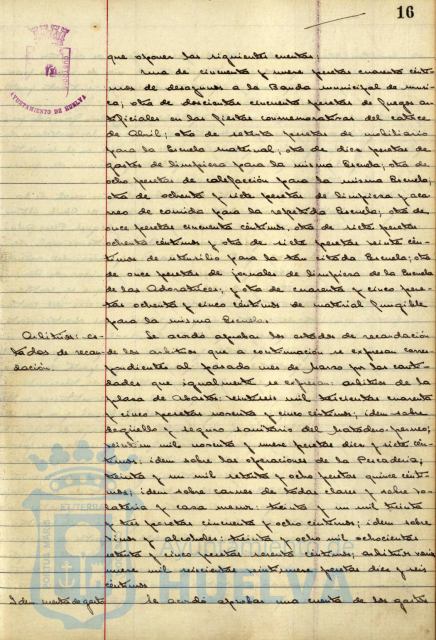 16
AYUNTAMIENTO DE HUELVA
que oponer las siguientes cuentas:
una de cincuenta y nueve pesetas cuarenta cénti-
mos de desayunos a la Banda municipal de músi-
ca; otra de doscientas cincuenta pesetas de fuegos ar-
tificiales en las fiestas conmemorativas del catorce
de Abril; otra de setenta pesetas de mobiliario
para la Escuela maternal; otra de diez pesetas de
gastos de limpieza para la misma Escuela; otra de
ocho pesetas de calefacción para la misma Escuela;
otra de ochenta y siete pesetas de limpieza y aca-
rreo de comida para la repetida Escuela; otra de
once pesetas cincuenta céntimos, otra de siete pesetas
ochenta céntimos y otra de siete pesetas veinte cén-
timos de utensilio para la tan citada Escuela; otra
de once pesetas de jornales de limpieza de la Escuela
de las Adoratrices; y otra de cuarenta y cinco pese-
tas ochenta y cinco céntimos de material fungible
para la misma Escuela.
Arbitrios: es-
tados de recau-
dación
Se acordó aprobar los estados de recaudación
de los arbitrios que a continuación se expresan corres-
pondientes al pasado mes de Marzo por las canti-
dades que igualmente se expresan: arbitrios de la
plaza de Abastos: veintiseis mil trescientas cuarenta
y cinco pesetas noventa y cinco céntimos; idem sobre
degüello y seguro sanitario del Matadero perneo;
veintiun mil noventa y nueve pesetas diez y siete cén-
timos; idem sobre las operaciones de la Pescadería;
treinta y un mil setenta y ocho pesetas quince cénti-
mos; idem sobre carnes de todas clases y sobre vo-
latería y caza menor: treinta y un mil treinta
y tres pesetas cincuenta y ocho céntimos; idem sobre
vinos y alcoholes: treinta y ocho mil ochocientas
setenta y cinco pesetas sesenta céntimos; arbitrios varios
nueve mil seiscientas veintinueve pesetas diez y seis
céntimos
Se acordó aprobar una cuenta de los gastos
HUELVA